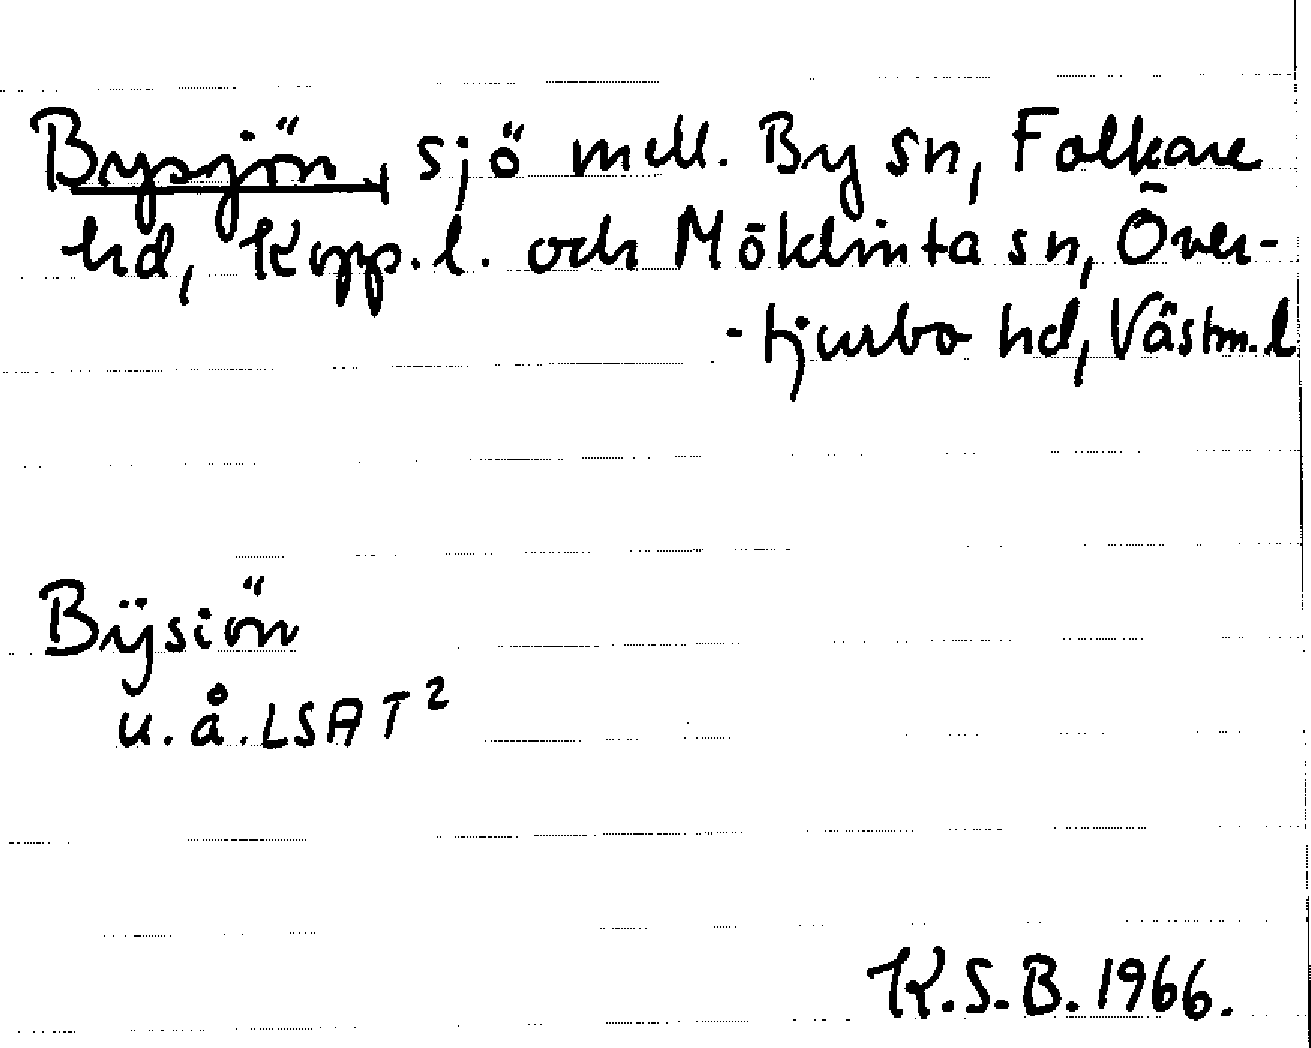 Bysjön, sjö mell. By sn, Folkare
hd, Kopp.l. och Möklinta sn, Över-
-tjurbo hd, Västm.l
Bÿsiön
u.å. LSAT²
K.S.B. 1966.